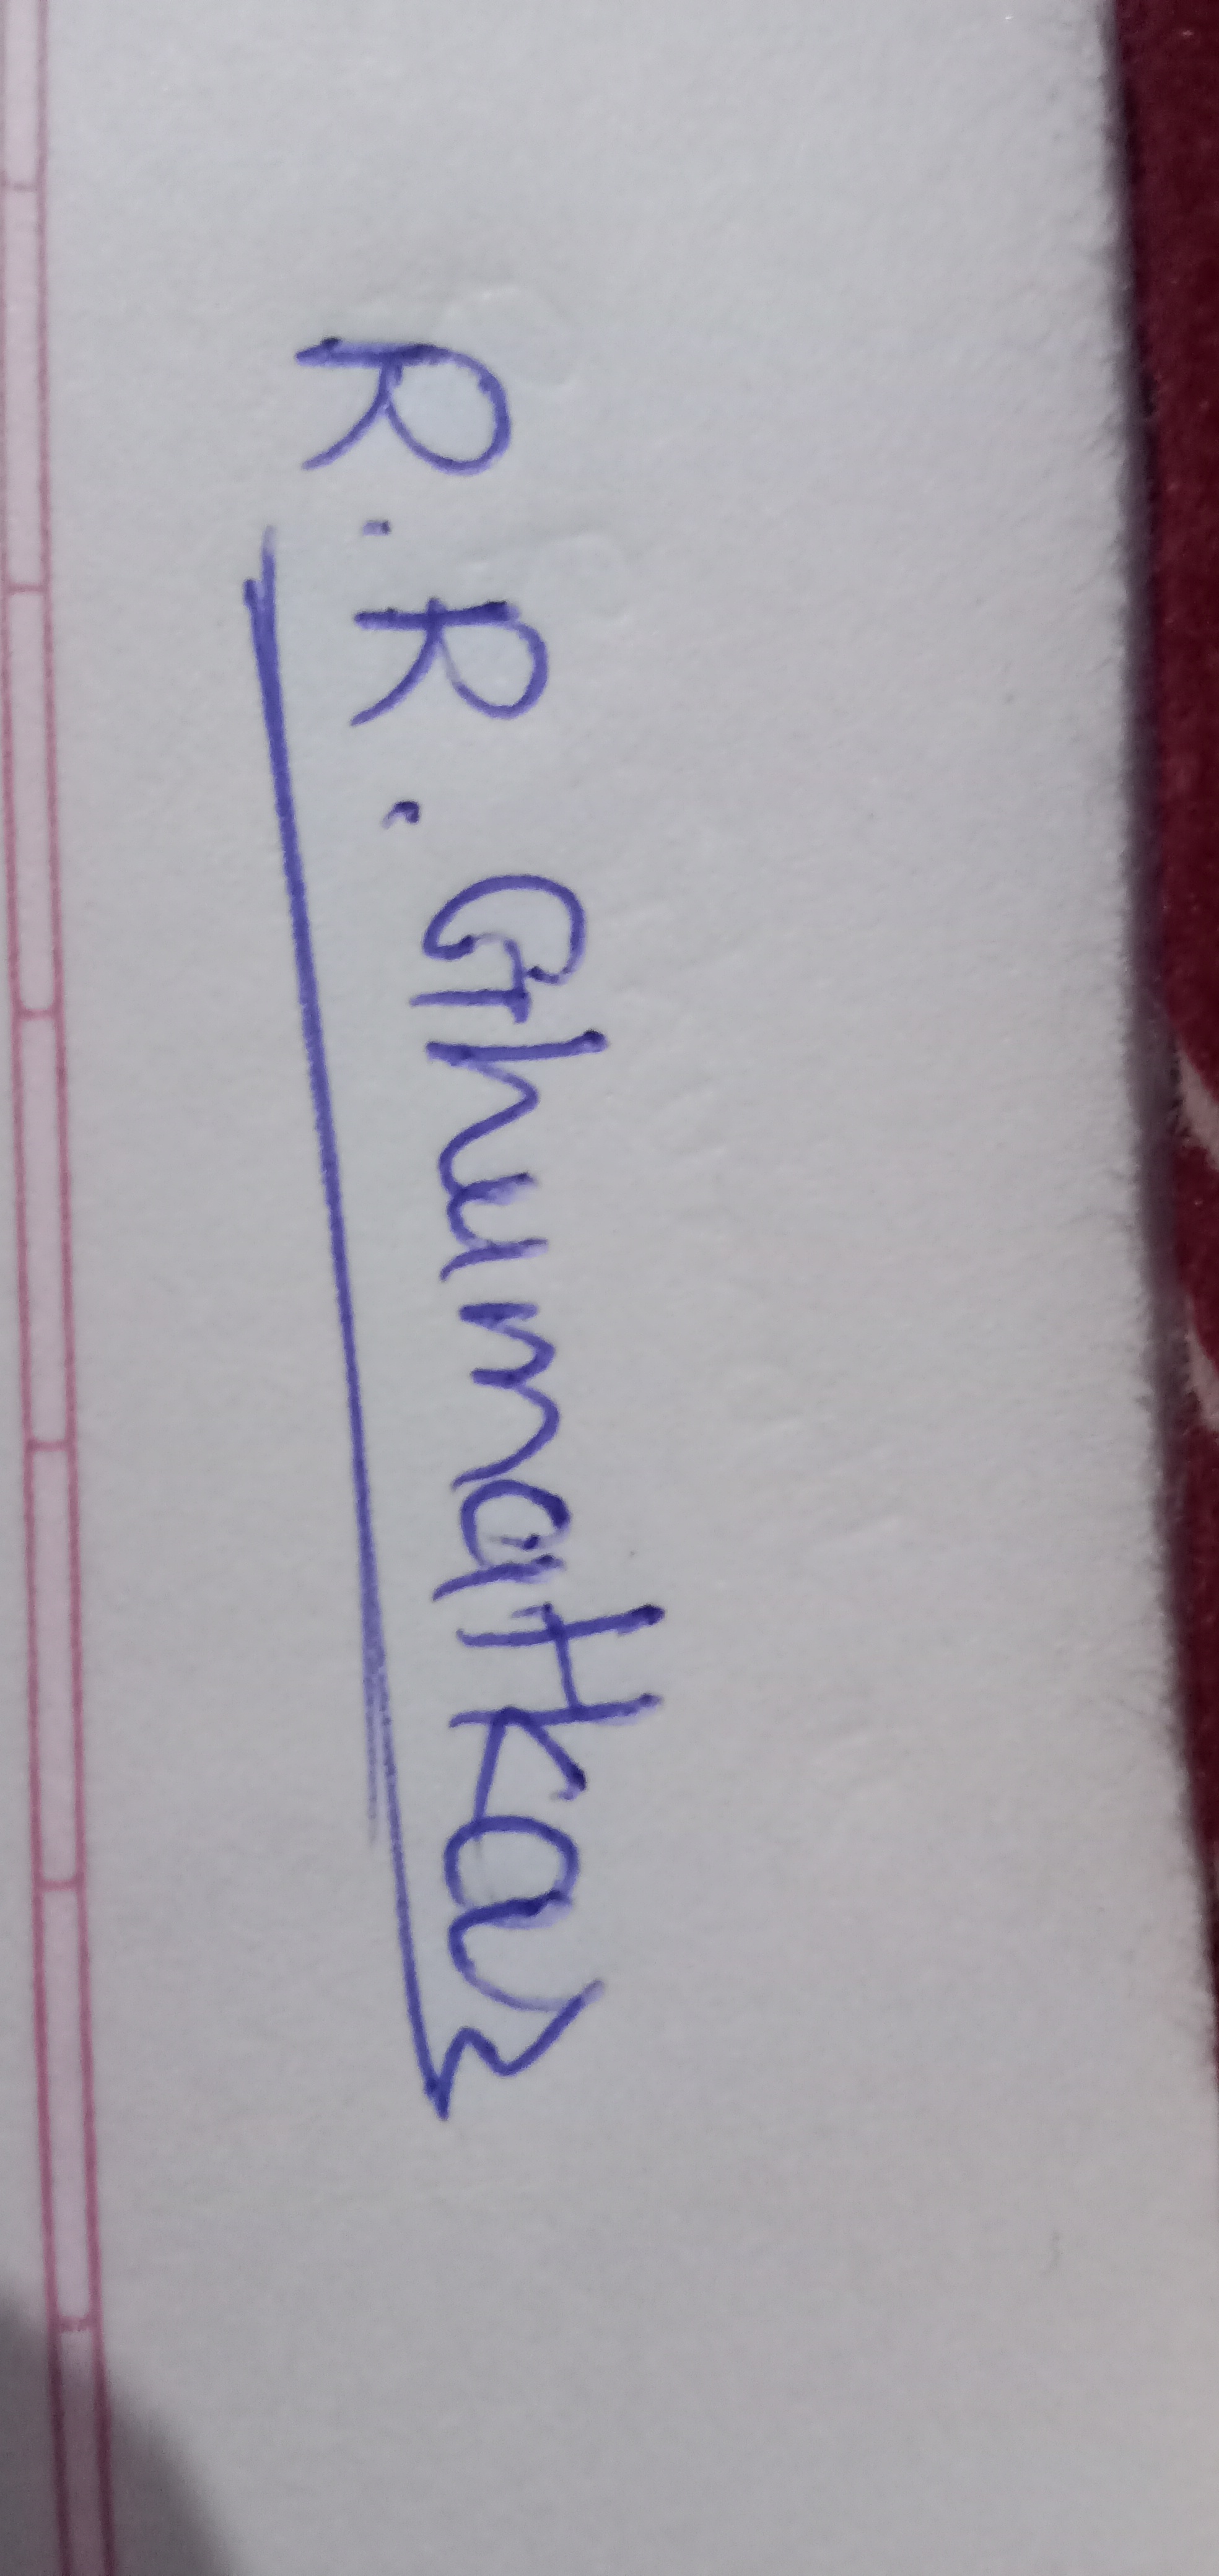 R. R. Ghumatkar